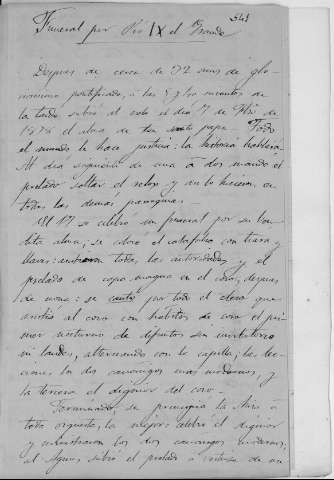 541
Funeral por Pio IX el Grande
Despues de cerca de 32 años de glo-
riosisimo pontificado, á las 5 y 40 minutos de
la tarde subió al cielo el dia 7 de Fbro de
1878 el alma de tan santo papa. Todo
el mundo le hace justicia: la historia hablará.
Al dia siguiente de una á dos mandó el
prelado soltar el reloj y asi lo hicieron en
todas las demás parroquias.
El 17 se celebró un funeral por su ben-
dita alma; se colocó el catafalco con tiara y
llaves: todas las autoridades y el
prelado de capa magna en el coro, despues
de nona: se cantó por todo el clero que
asistió al coro con habitos de coro el pri-
mer nocturno de difuntos sin invitatorio
ni laudes, alternando con la capilla; las lec-
ciones los dos canonigos mas modernos, y
la tercera el dignior del coro.
Terminado, se principió la Misa á
toda orquesta, la mejor: celebró el dignior
y ministraron los dos canonigos modernos,
al Agnus, subió el prelado á vestirse de un